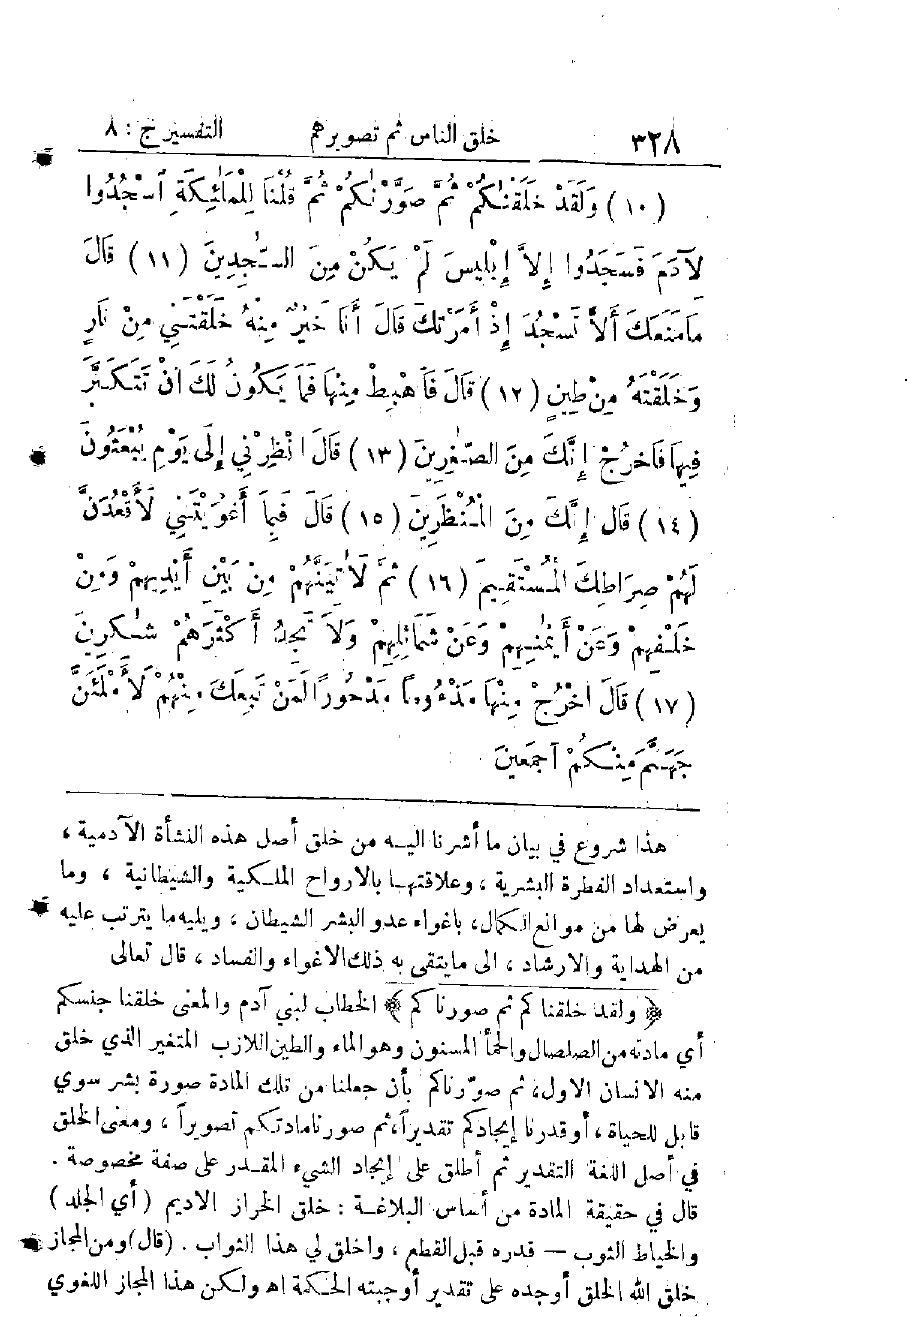 ٣٢٨ خلق الناس ثم تصويرهم التفسير ج : ٨
(١٠) وَلَقَدْ خَلَقْنٰكُمْ ثُمَّ صَوَّرْنٰكُمْ ثُمَّ قُلْنَا لِلْمَلٰئِكَةِ اسْجُدُوا
لآدَمَ فَسَجَدُوا إِلاَّ إِبْلِيسَ لَمْ يَكُنْ مِنَ السّٰجِدِينَ (١١) قَالَ
مَامَنَعَكَ أَلاَّ تَسْجُدَ إِذْ أَمَرْتُكَ قَالَ أَنَا خَيْرٌ مِنْهُ خَلَقْتَنِي مِنْ نَارٍ
وَخَلَقْتَهُ مِنْ طِينٍ (١٢) قَالَ فَاهْبِطْ مِنْهَا فَمَا يَكُونُ لَكَ أَنْ تَتَكَبَّرَ
فِيهَا فَاخْرُجْ إِنَّكَ مِنَ الصّٰغِرِينَ (١٣) قَالَ انْظِرْنِي إِلَى يَوْمِ يُبْعَثُونَ
(١٤) قَالَ إِنَّكَ مِنَ الْمُنْظَرِينَ (١٥) قَالَ فَبِمَا أَغْوَيْتَنِي لَأَقْعُدَنَّ
لَهُمْ صِرَاطَكَ الْمُسْتَقِيمَ (١٦) ثُمَّ لَآتِيَنَّهُمْ مِنْ بَيْنِ أَيْدِيهِمْ وَمِنْ
خَلْفِهِمْ وَعَنْ أَيْمٰنِهِمْ وَعَنْ شَمَائِلِهِمْ وَلاَ تَجِدُ أَكْثَرَهُمْ شٰكِرِينَ
(١٧) قَالَ اخْرُجْ مِنْهَا مَذْءُومًا مَدْحُورًا لَمَنْ تَبِعَكَ مِنْهُمْ لَأَمْلَئَنَّ
جَهَنَّمَ مِنْكُمْ أَجْمَعِينَ
هذا شروع في بيان ما أشرنا اليه من خلق أصل هذه النشأة الآدمية ،
واستعداد الفطرة البشرية ، وعلاقتها بالارواح الملكية والشيطانية ، وما
يعرض لها من موانع الكمال، باغواء عدو البشر الشيطان ، ويليه ما يترتب عليه
من الهداية والارشاد ، الى ما يتقى به ذلك الاغواء والفساد ، قال تعالى
﴿ ولقد خلقناكم ثم صورناكم ﴾ الخطاب لبني آدم والمعنى خلقنا جنسكم
أي مادته من الصلصال والحمأ المسنون وهو الماء والطين اللازب المتغير الذي خلق
منه الانسان الاول، ثم صوّرناكم بأن جعلنا من تلك المادة صورة بشر سوي
قابل للحياة ، أو قدرنا إيجادكم تقديراً، ثم صورنا مادتكم تصويراً ، ومعنى الخلق
في أصل اللغة التقدير ثم أطلق على إيجاد الشيء المقدر على صفة مخصوصة .
قال في حقيقة المادة من أساس البلاغة : خلق الخراز الاديم (أي الجلد )
والخياط الثوب — قدره قبل القطع ، واخلق لي هذا الثواب . (قال) ومن المجاز
خلق الله الخلق أوجده على تقدير أوجبته الحكمة اه ولكن هذا المجاز اللغوي